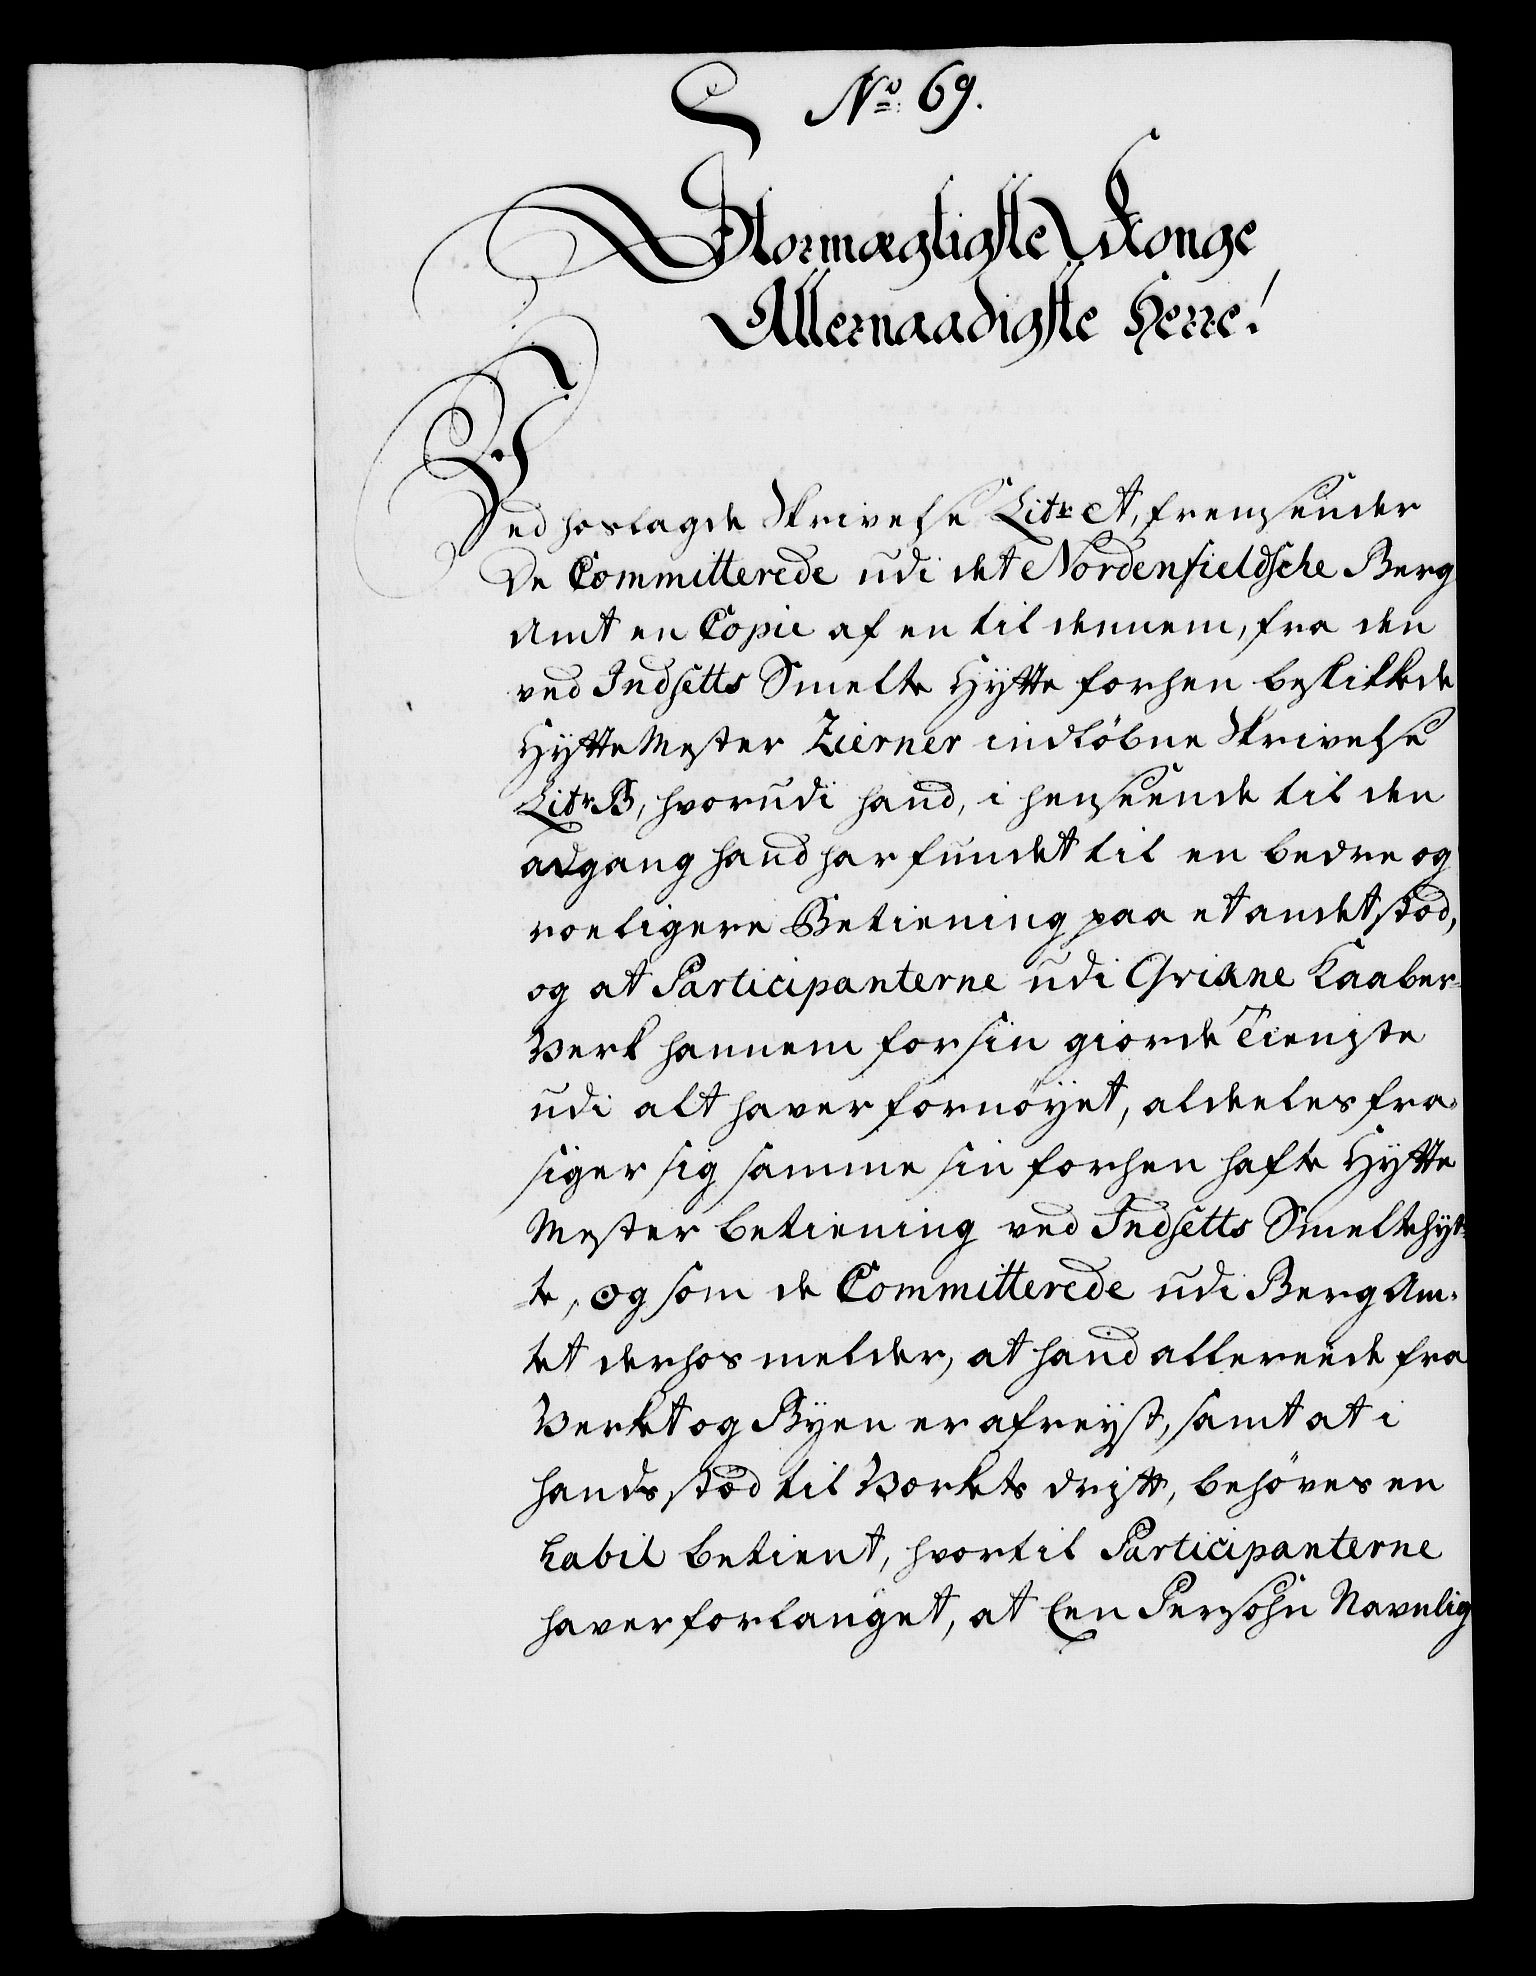 No: 69.
Stormægtigste Konge
Allernaadigste Herre!
Ved hoslagde Skrivelse Litr A, fremsender
De Committerede udi det Nordenfieldsche Berg
Amt en Copie af en til dennem, fra den
ved Indsetts Smelte Hytte forhen beskikkede
Hytte Mester Zierner indløbne Skrivelse
Litr B, hvorudi hand, i henseende til den
adgang hand har fundet til en bedre og
roeligere Betiening paa et andet stæd,
og at Participanterne udi Qvikne Kaaber-
Verk hannem for sin giorde Tieniste
udi alt haver fornøyet, aldeeles fra-
siger sig samme sin forhen hafte Hytte
Mester betiening ved Indsetts Smeltehyt-
te, og som de Committerede udi Berg Am-
tet derhos melder, at hand allereede fra
Verket og Byen er afreyst, samt at i
hands stæd til Verkets drift, behøves en
habil betient, hvortil Participanterne
haver forlanget, at Een Persohn Navnlig